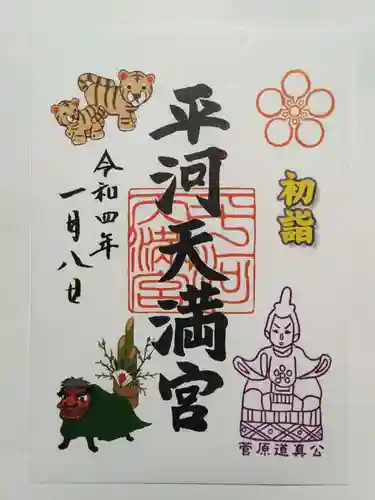 初詣
平河天満宮
令和四年
一月八日
平河天満宮
菅原道真公